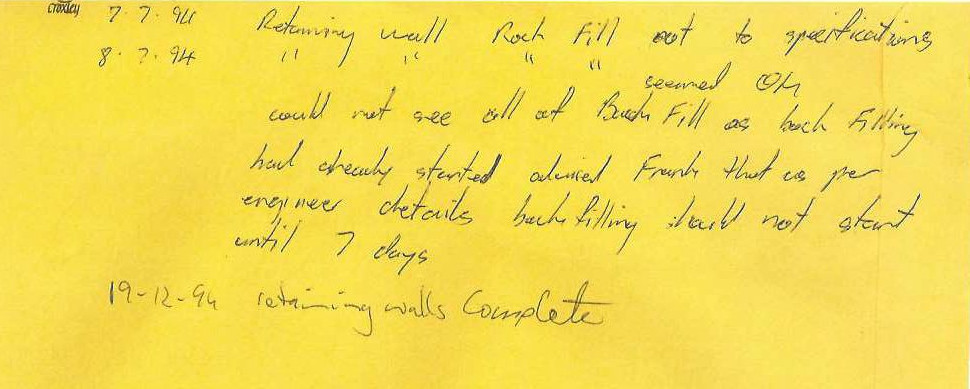 Croxley
7.7.94 Retaining wall Rock Fill not to specifications
8.7.94 " " " " seemed OK
could not see all of Back Fill as back Filling
had already started advised Frank that as per
engineer details back filling should not start
until 7 days
19-12-94 retaining walls Complete